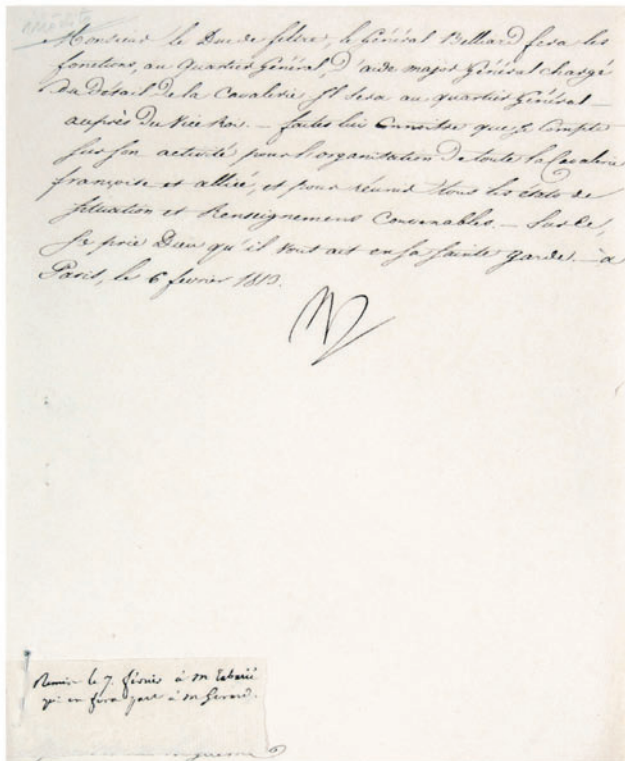 inédite
Monsieur le Duc de feltre, le Général Belliard fera les
fonctions, au Quartier Général, d'aide major Général chargé
du détail de la Cavalerie Il sera au quartier Général —
auprès du Vice Roi. — faites lui Connoitre que je Compte
sur son activité pour l'organisation de toute la Cavalerie
françoise et alliée, et pour réunir tous les états de
situation et Renseignemens Convenables. — Sur Ce,
Je prie Dieu qu'il vous ait en sa sainte garde. — à
Paris, le 6 fevrier 1813.
Remis le 7. février à m
qui en fera part à mr Gerard.